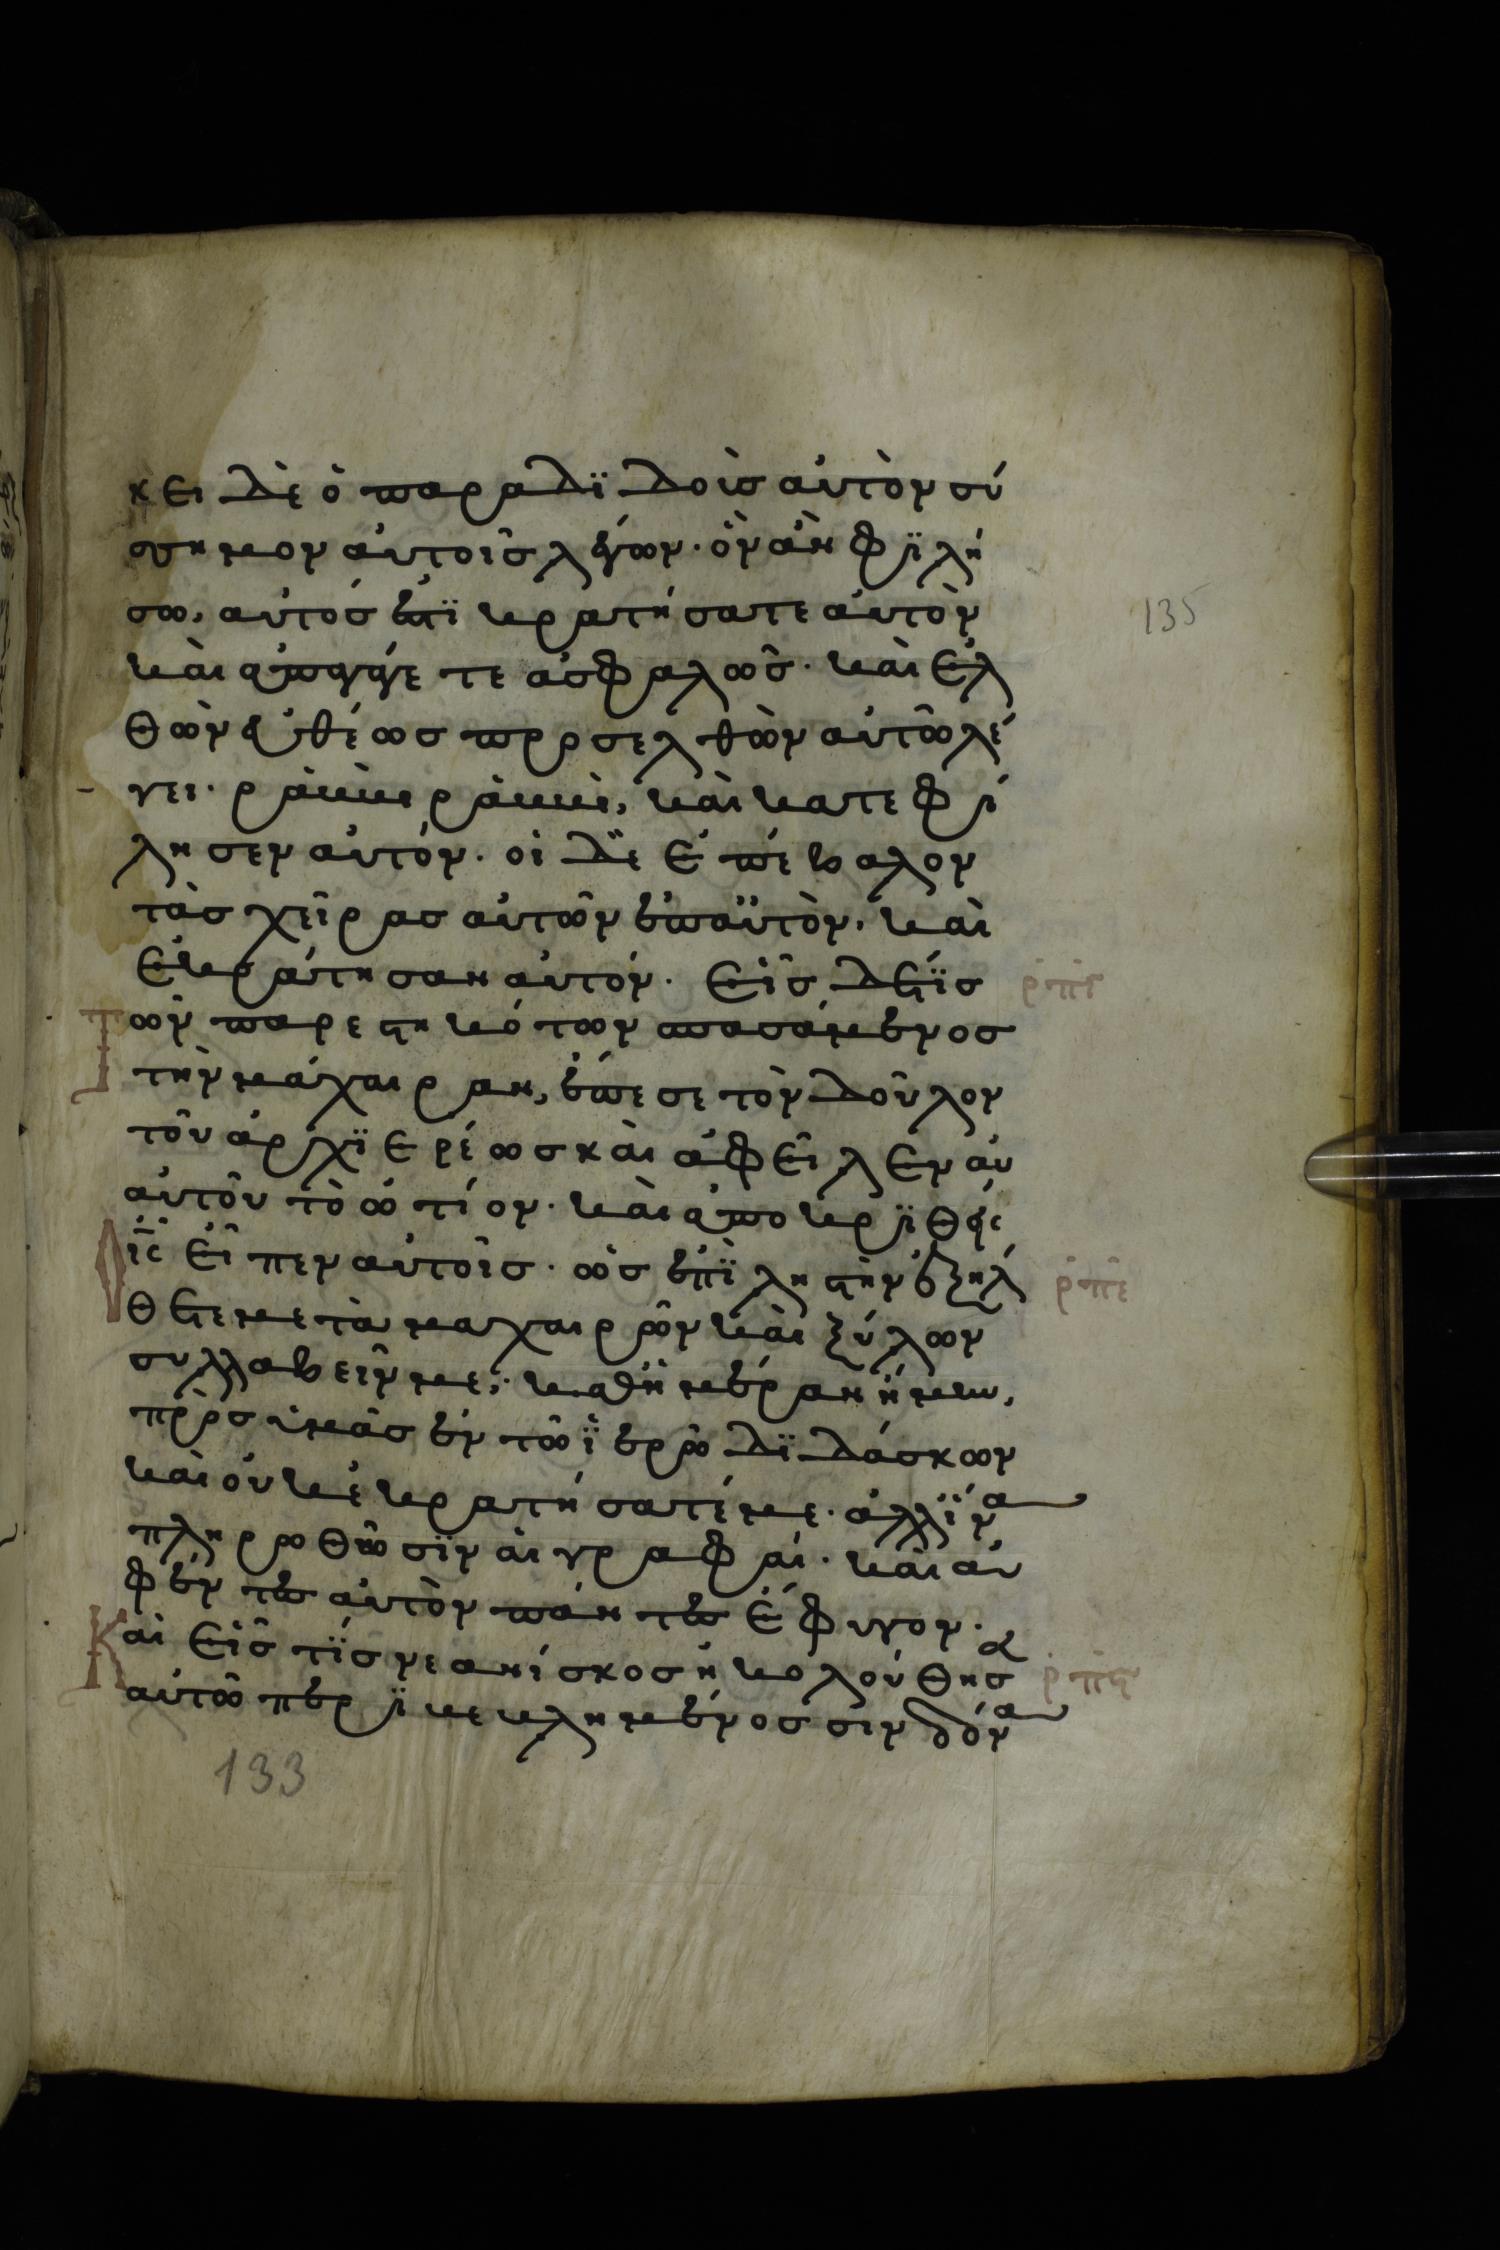 κει δὲ ὁ παραδϊδοὺσ ἀυτὸν σύ
σσημον ἀυτοῖσ λέγων· ὃν ἂν φϊλή
σω, αὐτόσ ἐστϊ κρατήσατε ἀυτὸν
καὶ ἀπαγάγετε ἀσφαλῶσ· καὶ ἐλ
θὼν ἐυθέωσ προσελθὼν αὐτῶ λέ
γει· ῥάββι ῥάββὶ, καὶ κατεφί
λησεν αὐτόν· οἱ δὲ ἐπέβαλον
τὰσ χεῖρασ αὐτῶν ἐπ αὐτὸν, καὶ
ἐκράτησαν αὐτόν· εἷσ δέ τϊσ ρπδ
τῶν παρεστηκότων σπασάμενοσ
τὴν μάχαιραν, ἔπεσε τὸν δοῦλον
τοῦ ἀρχϊερέωσ καὶ ἀφεῖλεν ἀυ
αὐτοῦ τὸ ὠτίον· καὶ ἀποκρϊθεὶς
ὁ ις εἶπεν αὐτοῖσ· ὡσ ἐπὶ ληστὴν ἐξήλ ρπε
θετε μετὰ μαχαιρῶν καὶ ξύλων
συλλαβεῖν με; καθ ἡμέραν ἤμην,
πρὸσ ὑμᾶσ ἐν τῶ ϊερῶ δϊδάσκων
καὶ οὐκ ἐκρατήσατέ με· ἀλλ ἵνα
πληρωθῶσϊν αἱ γραφαί· καὶ ἀ
φέντεσ αὐτὸν πάντεσ ἔφυγον·
Καὶ εἷσ τϊσ νεανίσκοσ ἠκολούθησα ρπς
αὐτῶ περϊβεβλημένοσ σινδόνα
133
135